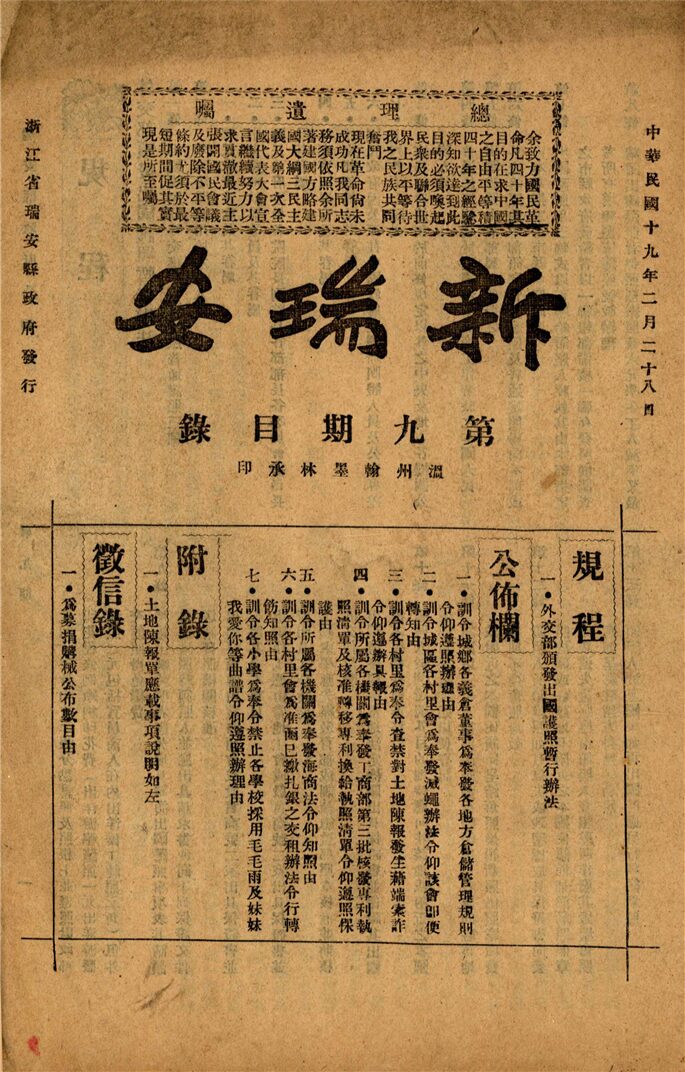 中華民國十九年二月二十八日
總理遺囑
余致力國民革
命凡四十年其
目的在求中國
之自由平等積
四十年之經驗
深知欲達到此
目的必須喚起
民衆及聯合世
界上以平等待
我之民族共同
奮鬥
現在革命尙未
成功凡我同志
務須依照余所
著建國方略建
國大綱三民主
義及第一次全
國代表大會宣
言繼續努力以
求貫澈最近主
張開國民會議
及廢除不平等
條約尤須於最
短期間促其實
現是所至囑
新瑞安
第九期目錄
溫州翰墨林承印
浙江省瑞安縣政府發行
規程
一•外交部頒發出國護照暫行辦法
公佈欄
一•訓令城鄉各義倉董事爲奉發各地方倉儲管理規則
令仰遵照辦理由
二•訓令城區各村里會爲奉發滅蠅辦法令仰該會卽便
轉知由
三•訓令各村里爲奉令查禁對土地陳報發生藉端索詐
令仰遵辦具報由
四•訓令所屬各機關爲奉發工商部第三批核發專利執
照淸單及核准轉移專利換給執照淸單令仰遵照保
護由
五•訓令所屬各機關爲奉發海商法令仰知照由
六•訓令各村里會爲准函已繳扎銀之交租辦法令行轉
飭知照由
七•訓令各小學爲奉令禁止各學校採用毛毛雨及妹妹
我愛你等曲譜令仰遵照辦理由
附錄
一•土地陳報單應載事項說明如左
徵信錄
一•爲募捐購械公布數目由